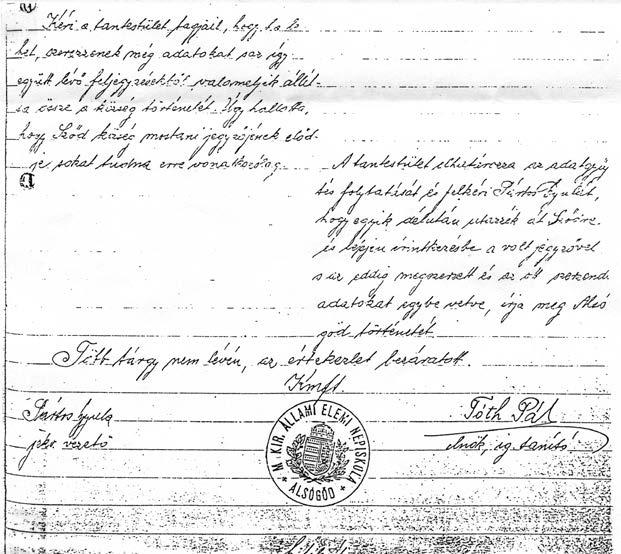 Kéri a tankstület tagjait, hogy ha le
het, szerezzenek még adatokat s az így
együtt lévő feljegyzésekből valamelyik állít
sa össze a község történetét. Úgy hallotta,
hogy Sződ község mostani jegyzőjének előd
je sokat tudna erre vonatkozólag.
A tankstület elhatározza az adatgyűj
tés folytatását és felkéri Pártos Gyulát,
hogy egyik délután utazzék át Sződre
és lépjen érintkezésbe a volt jegyzővel
s az eddig megszerzett és az ott szerzendő
adatokat egybe vetve, írja meg Alsó
göd történetét.
Több tárgy nem lévén, az értekezlet bezáratott.
Kmft
Pártos Gyula
jkv. vezető
Tóth Pál
elnök, ig. tanító
* M. KIR. ÁLLAMI ELEMI NÉPISKOLA *
ALSÓGÖD